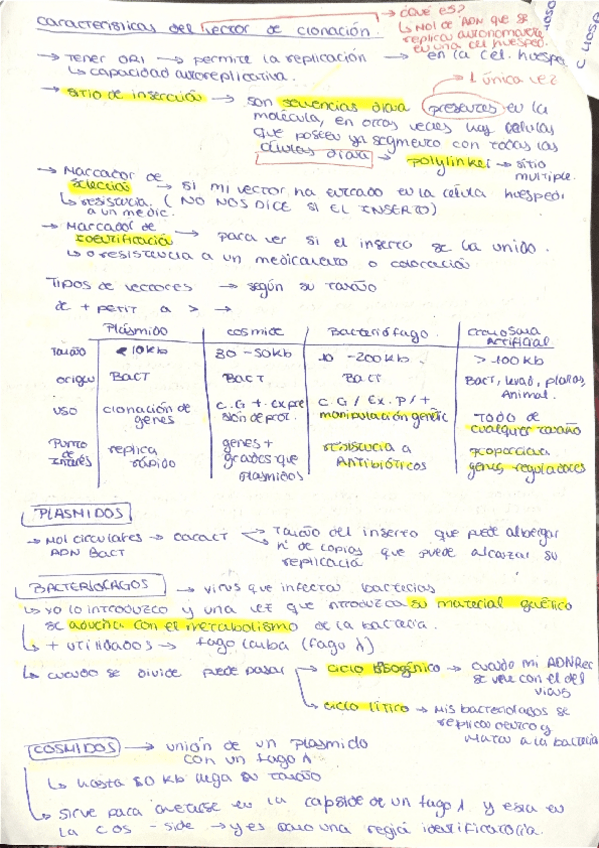 características del vector de clonación. → ¿QUÉ ES?
↳ Mol de ADN que se
replica autonomamente
en una cel huesped.
→ TENER ORI → permite la replicación → en la cel. huesped
↳ capacidad autoreplicativa.
→ 1 única vez
→ sitio de inserción → son secuencias diana presentes en la
molécula, en otras veces hay células
que poseen ya segmento con todas las
células diana → polylinker → sitio
multiple.
→ Marcador de
selección → si mi vector ha entrado en la célula huesped
↳ resistencia. (NO NOS DICE SI EL INSERTO)
a un medic.
→ Marcador de
identificación → para ver si el inserto se ha unido.
↳ o resistencia a un medicamento o coloración
TIPOS de vectores → según su tamaño
de + petit a > →
Plásmido cosmido Bacteriófago. cromosoma
Artificial.
Tamaño < 10kb 30 - 50kb 10 - 200kb > 100 kb
origen BACT BACT BACT BACT, levad, plantas,
Animal.
uso clonación de
genes C.G + expre
sión de prot. C.G / Ex. P / +
manipulación genétic TODO de
cualquier tamaño
Punto
de
interés replica
rápido genes +
grandes que
plasmidos resistencia a
ANTIBIÓTICOS proporciona
genes reguladores
PLASMIDOS
→ Mol circulares → caract → Tamaño del inserto que puede albergar
ADN BACT → nº de copias que puede alcanzar su
replicación
BACTERIOFAGOS → virus que infectan bacterias
↳ yo lo introduzco y una vez que introduzca su material genético
se aducña con el metabolismo de la bacteria.
↳ + utilidados → fago lamba (fago λ)
↳ cuando se divide puede pasar → ciclo lisogénico → cuando mi ADNRec
se une con el del
virus
↳ ciclo lítico → Mis bacteriofagos se
replican dentro y
matan a la bacteria
COSMIDOS → unión de un plasmido
con un fago λ
↳ hasta 50 kb llega su tamaño
↳ sirve para meterse en la capside de un fago λ y esta en
la cos - side → y es como una región identificatoria.